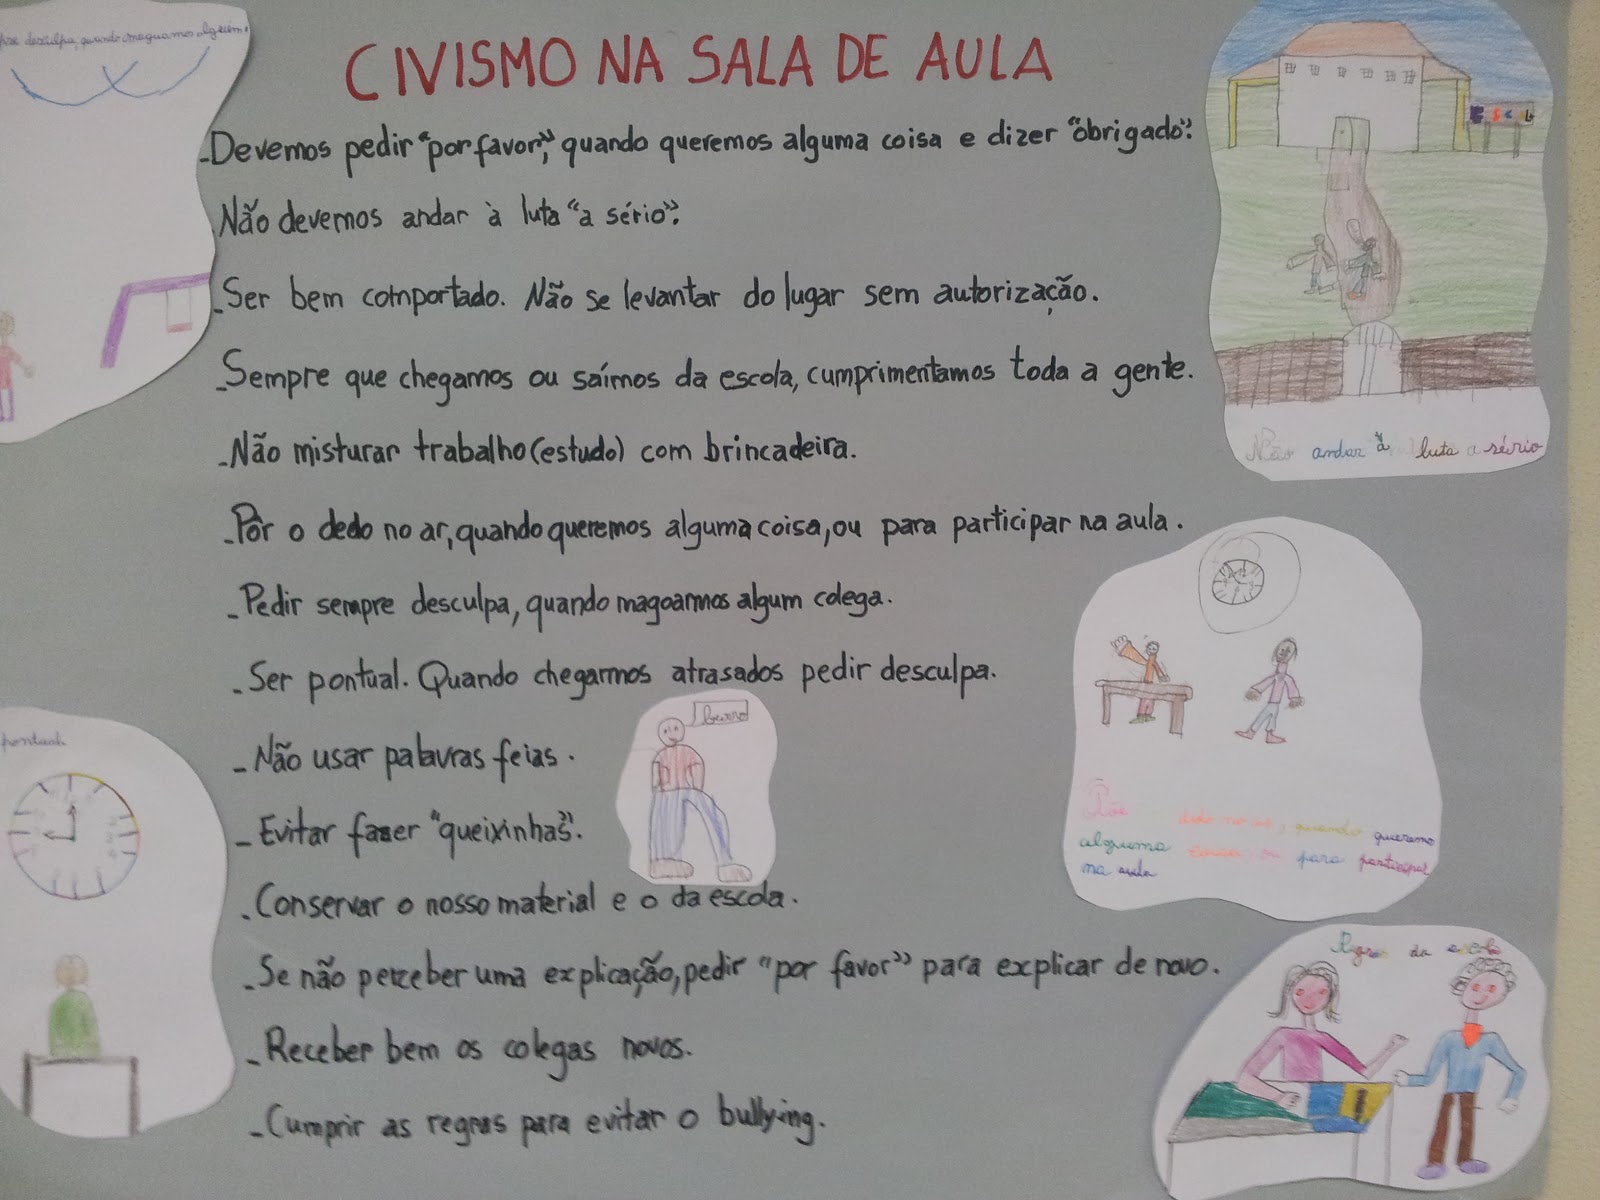 desculpa, quando magoamos alguém.
CIVISMO NA SALA DE AULA
-Devemos pedir "por favor", quando queremos alguma coisa e dizer "obrigado".
-Não devemos andar à luta "a sério".
-Ser bem comportado. Não se levantar do lugar sem autorização.
-Sempre que chegamos ou saímos da escola, cumprimentamos toda a gente.
-Não misturar trabalho (estudo) com brincadeira.
-Pôr o dedo no ar, quando queremos alguma coisa, ou para participar na aula.
-Pedir sempre desculpa, quando magoarmos algum colega.
-Ser pontual. Quando chegarmos atrasados pedir desculpa.
-Não usar palavras feias.
-Evitar fazer "queixinhas".
-Conservar o nosso material e o da escola.
-Se não perceber uma explicação, pedir "por favor" para explicar de novo.
-Receber bem os colegas novos.
-Cumprir as regras para evitar o bullying.
Não andar à luta a sério
burro
pontual.
dedo no ar, quando queremos
alguma coisa, ou para participar
na aula
Regras da escola